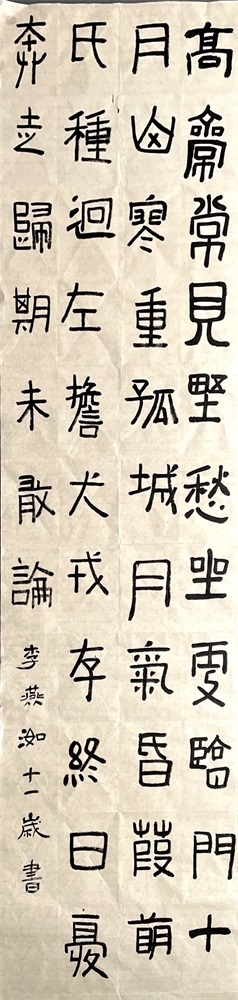 髙齋常見野愁坐更臨門十
月山寒重孤城月氣昏葭萌
氏種迴左擔犬戎存終日憂
奔走歸期未敢論 李燕洳十一歲書